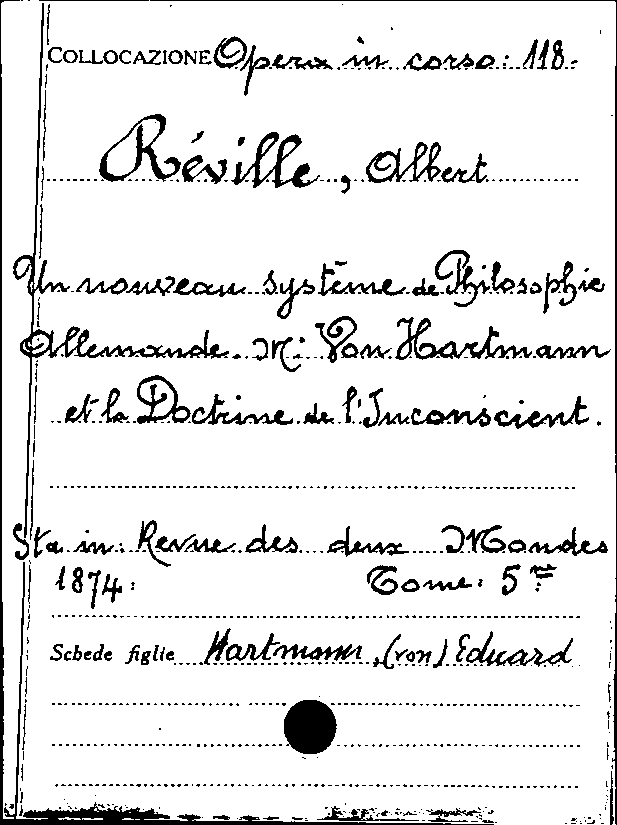 COLLOCAZIONE Opera in corso: 118.
Réville, Albert
Un nouveau système de Philosophie
Allemande. M: Von Hartmann
et la Doctrine de l'Inconscient.
Sta in: Revue des deux Mondes
1874: Tome: 5me
Schede figlie Hartmann, (von) Eduard